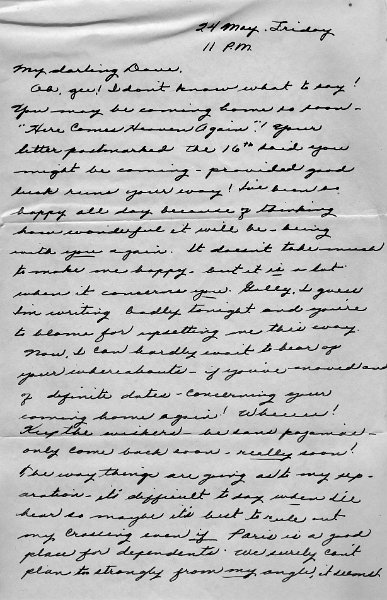 24 May. Friday
11 P.M.
My darling Dave,
Oh, gee! I don't know what to say!
You may be coming home so soon -
"Here Comes Heaven Again"! Your
letter postmarked the 16th said you
might be coming - provided good
luck runs your way! I've been so
happy all day because of thinking
how wonderful it will be - being
with you again. It doesn't take much
to make me happy - but it is a lot
when it concerns you. Golly, I guess
I'm writing badly tonight and you're
to blame for upsetting me this way.
Now, I can hardly wait to hear of
your whereabouts - if you've moved and
of definite dates - concerning your
coming home again! Wheeeee!
Keep the - be sans pajamas -
only come back soon - really soon!
The way things are going as to my sep-
aration - it's difficult to say when I'll
hear so maybe it's best to rule out
my crossing even if Paris is a good
place for dependents. We surely can't
plan to strongly from my angle, it seems!